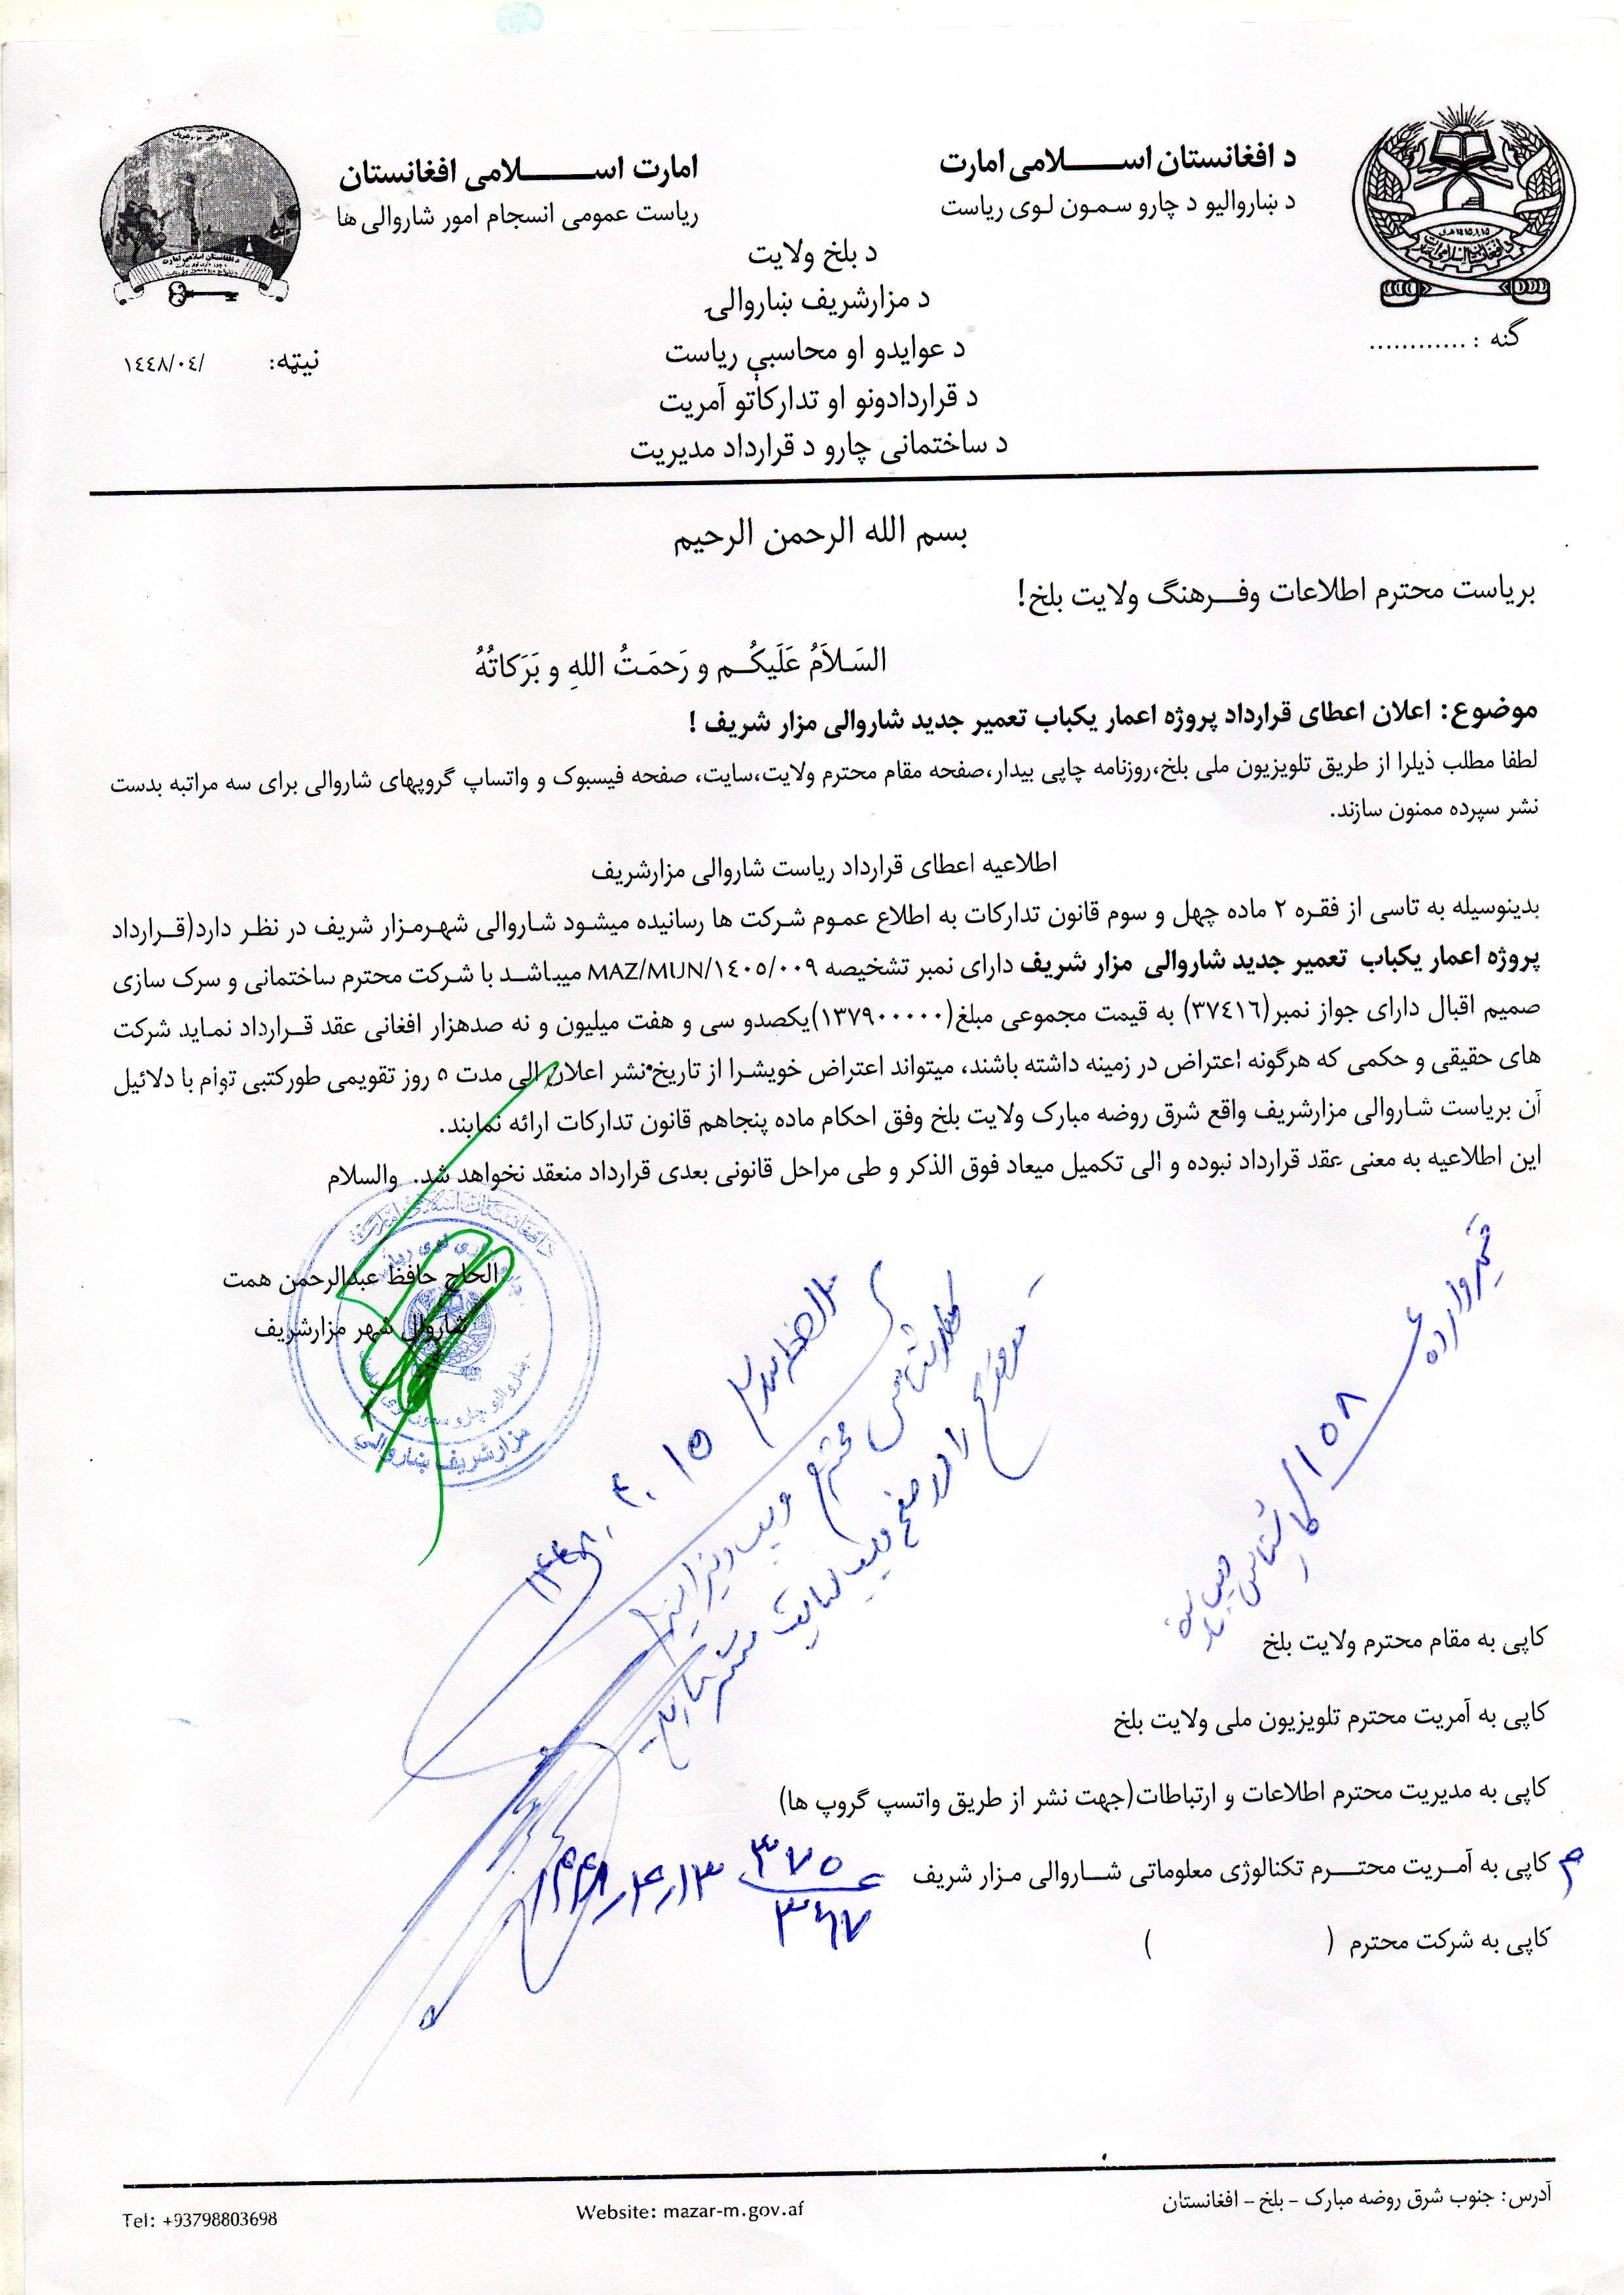 د افغانستان اســــلامی امارت
د ښاروالیو د چارو سمون لوی ریاست
امارت اســــلامی افغانستان
ریاست عمومی انسجام امور شاروالی ها
د بلخ ولایت
د مزارشریف ښاروالۍ
د عوایدو او محاسبې ریاست
د قراردادونو او تدارکاتو آمریت
د ساختمانی چارو د قرارداد مدیریت
گنه : ............
نیټه: /١٤٤٨/٠٤
بسم الله الرحمن الرحیم
بریاست محترم اطلاعات وفـرهنگ ولایت بلخ!
السَـلاَمُ عَلَیکُـم و رَحمَـتُ اللهِ و بَرَکاتُهُ
موضوع: اعلان اعطای قرارداد پروژه اعمار یکباب تعمیر جدید شاروالی مزار شریف !
لطفا مطلب ذیلرا از طریق تلویزیون ملی بلخ،روزنامه چاپی بیدار،صفحه مقام محترم ولایت،سایت، صفحه فیسبوک و واتساپ گروپهای شاروالی برای سه مراتبه بدست
نشر سپرده ممنون سازند.
اطلاعیه اعطای قرارداد ریاست شاروالی مزارشریف
بدینوسیله به تاسی از فقره ٢ ماده چهل و سوم قانون تدارکات به اطلاع عموم شرکت ها رسانیده میشود شاروالی شهرمزار شریف در نظر دارد(قـرارداد
پروژه اعمار یکباب تعمیر جدید شاروالی مزار شریف دارای نمبر تشخیصه MAZ/MUN/١٤٠٥/٠٠٩ میباشـد با شرکت محترم ساختمانی و سرک سازی
صمیم اقبال دارای جواز نمبر(٣٧٤١٦) به قیمت مجموعی مبلغ(١٣٧٩٠٠٠٠٠)یکصدو سی و هفت میلیون و نه صدهزار افغانی عقد قـرارداد نماید شرکت
های حقیقی و حکمی که هرگونه اعتراض در زمینه داشته باشند، میتواند اعتراض خویشرا از تاریخ نشر اعلان الی مدت ٥ روز تقویمی طورکتبی توأم با دلائیل
آن بریاست شاروالی مزارشریف واقع شرق روضه مبارک ولایت بلخ وفق احکام ماده پنجاهم قانون تدارکات ارائه نمایند.
این اطلاعیه به معنی عقد قرارداد نبوده و الی تکمیل میعاد فوق الذکر و طی مراحل قانونی بعدی قرارداد منعقد نخواهد شد. والسلام
الحاج حافظ عبدالرحمن همت
شاروال شهر مزارشریف
مزارشریف ښاروالی
١٥٨
کاپی به مقام محترم ولایت بلخ
کاپی به آمریت محترم تلویزیون ملی ولایت بلخ
کاپی به مدیریت محترم اطلاعات و ارتباطات(جهت نشر از طریق واتسپ گروپ ها)
کاپی به آمـریت محتــرم تکنالوژی معلوماتی شــاروالی مـزار شریف
٣٧٥
٣٦٧
کاپی به شرکت محترم ( )
آدرس: جنوب شرق روضه مبارک – بلخ – افغانستان
Website: mazar-m.gov.af
Tel: +93798803698